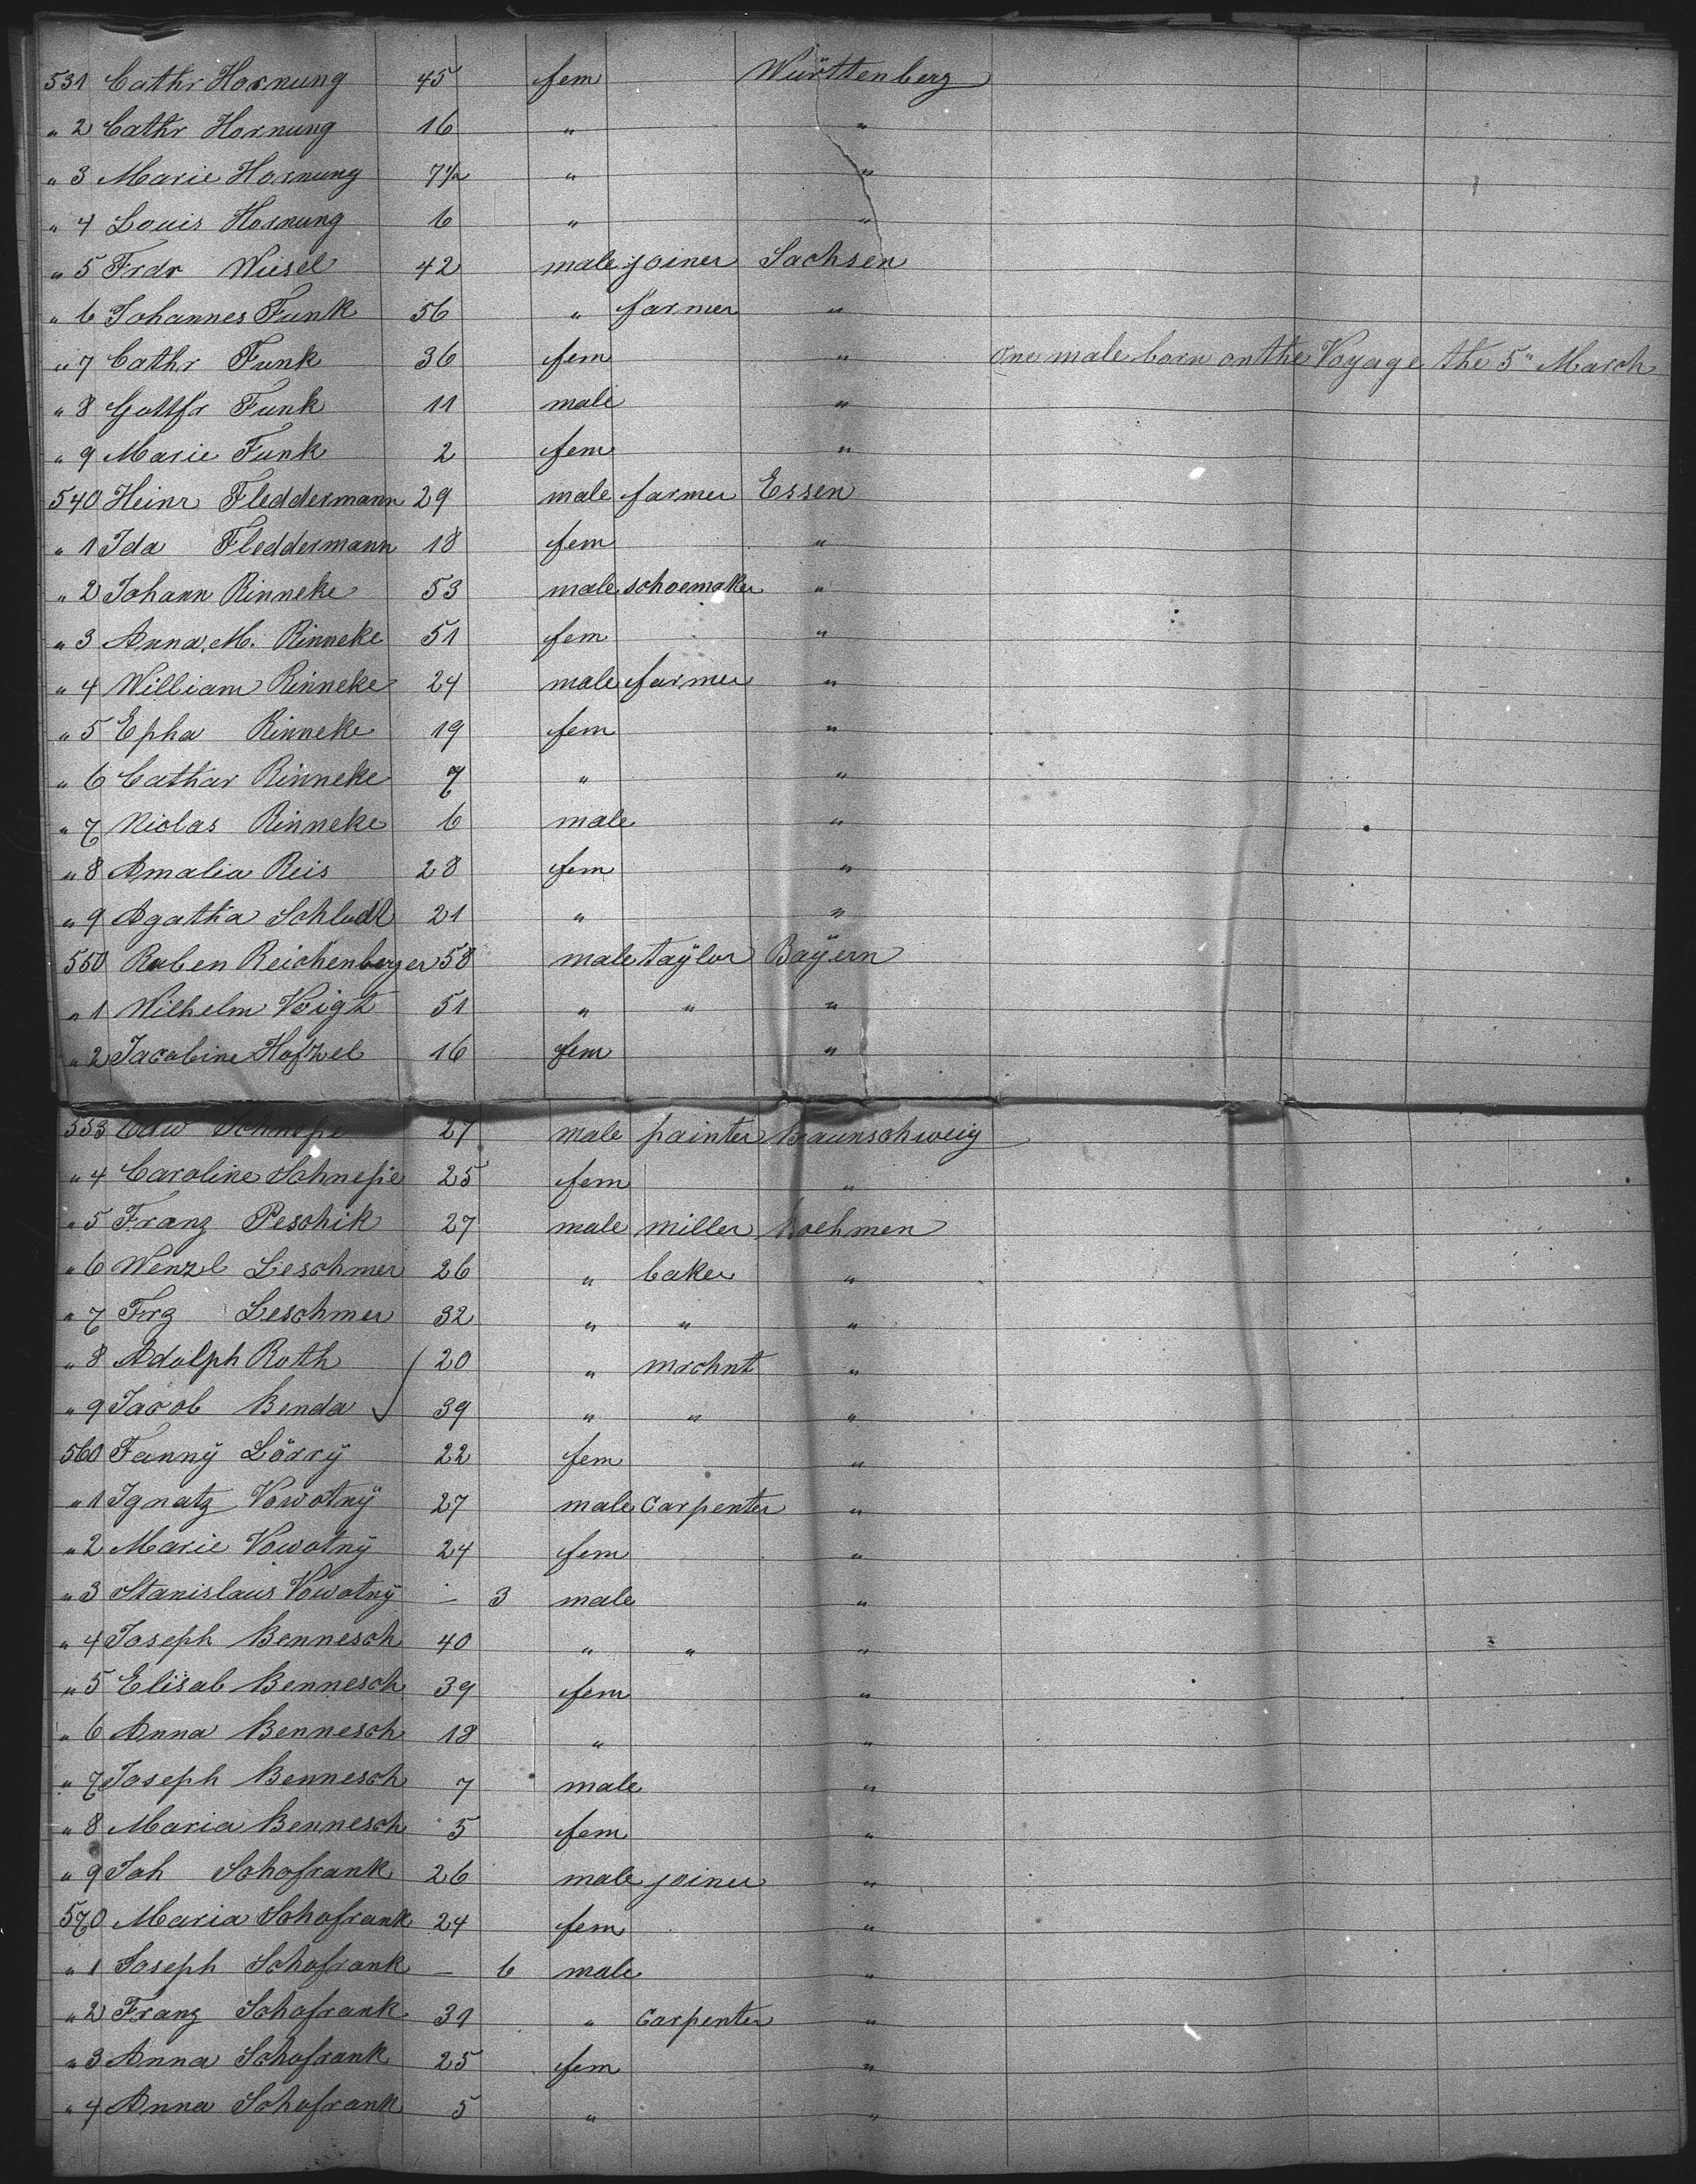 531 Cathr Hornung 45 fem Württenberg
" 2 Cathr Hornung 16 " "
" 3 Marie Hornung 7½ " "
" 4 Louis Hornung 6 " "
" 5 Frdr Wiesel 42 male joiner Sachsen
" 6 Johannes Funk 56 " farmer "
" 7 Cathr Funk 36 fem " One male born on the Voyage the 5" March
" 8 Gottfr Funk 11 male "
" 9 Marie Funk 2 fem "
540 Heinr Fleddermann 29 male farmer Essen
" 1 Ida Fleddermann 18 fem "
" 2 Johann Rinneke 53 male schoemaker "
" 3 Anna. M. Rinneke 51 fem "
" 4 William Rinneke 24 male farmer "
" 5 Epha Rinneke 19 fem "
" 6 Cathar Rinneke 7 " "
" 7 Niclas Rinneke 6 male "
" 8 Amalia Reis 28 fem "
" 9 Agatha Schludt 21 " "
550 Ruben Reichenberger 58 male taÿlor Baÿern
" 1 Wilhelm Voigt 51 " " "
" 2 Jacobine Hofzel 16 fem "
553 Edw Schnepe 27 male painter Braunschweig
" 4 Caroline Schnepe 25 fem "
" 5 Franz Peschik 27 male miller Boehmen
" 6 Wenzl Leschmer 26 " baker "
" 7 Frz Leschmer 32 " " "
" 8 Adolph Roth 20 " mrchnt "
" 9 Jacob Benda 39 " " "
560 Fannÿ Lörrÿ 22 fem "
" 1 Ignatz Vowotnÿ 27 male Carpenter "
" 2 Marie Vowotnÿ 24 fem "
" 3 Stanislaus Vowotnÿ — 3 male "
" 4 Joseph Bennesch 40 " " "
" 5 Elisab Bennesch 39 fem "
" 6 Anna Bennesch 18 " "
" 7 Joseph Bennesch 7 male "
" 8 Maria Bennesch 5 fem "
" 9 Joh Schafrank 26 male joiner "
570 Maria Schafrank 24 fem "
" 1 Joseph Schafrank — 6 male "
" 2 Franz Schafrank 31 " Carpenter "
" 3 Anna Schafrank 25 fem "
" 4 Anna Schafrank 5 " "